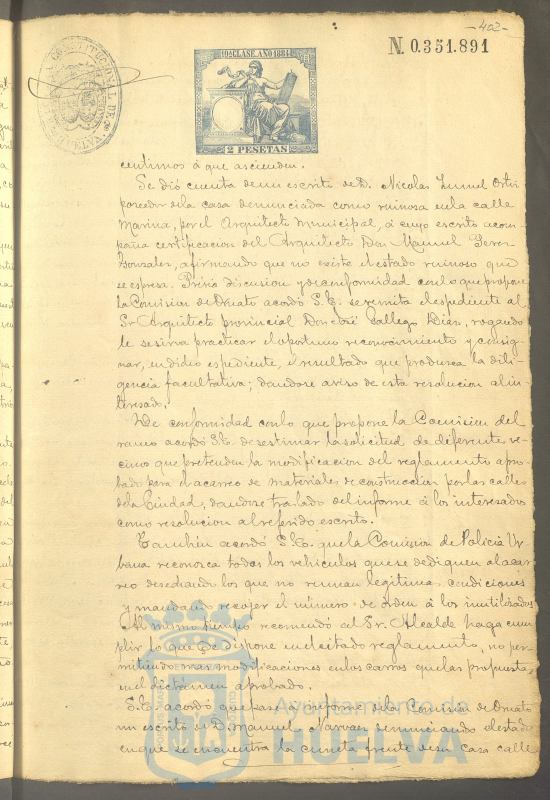 -402-
N. 0.351.891
CONSTITUCIONAL DE
HUELVA
10ª CLASE. AÑO 1884
2 PESETAS
centimos á que ascienden.
Se dió cuenta de un escrito de D. Nicolas Ortiz
poseedor de la casa denunciada como ruinosa en la calle
Marina, por el Arquitecto municipal, á cuyo escrito acom-
paña certificacion del Arquitecto Don Manuel Perez
Gonzalez, afirmando que no existe el estado ruinoso que
se espresa. Prévia discusion y de conformidad con lo que propone
la Comision de Ornato acordó S.E. se remita el espediente al
Sr Arquitecto provincial Don José Gallego Diaz, rogando
le se sirva practicar el oportuno reconocimiento y consig-
nar, en dicho espediente, el resultado que produzca la dili-
gencia facultativa; dandose aviso de esta resolucion al in-
teresado.
De conformidad con lo que propone la Comision del
ramo acordó S.E. desestimar la solicitud de diferente ve-
cinos que pretenden la modificacion del reglamento apro-
bado para el acarreo de materiales de construccion por las calles
de la Ciudad, dandose traslado del informe á los interesados
como resolucion al referido escrito.
Tambien acordó S.E. que la Comision de Policia Ur-
bana reconozca todos los vehiculos que se dediquen al acar-
reo desechando los que no reunan legitimas condiciones
y mandando recojer el número de orden á los inutilizados
Al mismo tiempo recomendó al Sr. Alcalde haga cum-
plir lo que se dispone en el citado reglamento, no per-
mitiendo mas modificaciones en los carros que las propuestas
en el dictamen aprobado.
S.E. acordó que pase á informe de la Comision de Ornato
un escrito de D. Manuel Narvaez denunciando el estado
en que se encuentra la cuneta frente de su casa calle
Ayuntamiento de
HUELVA